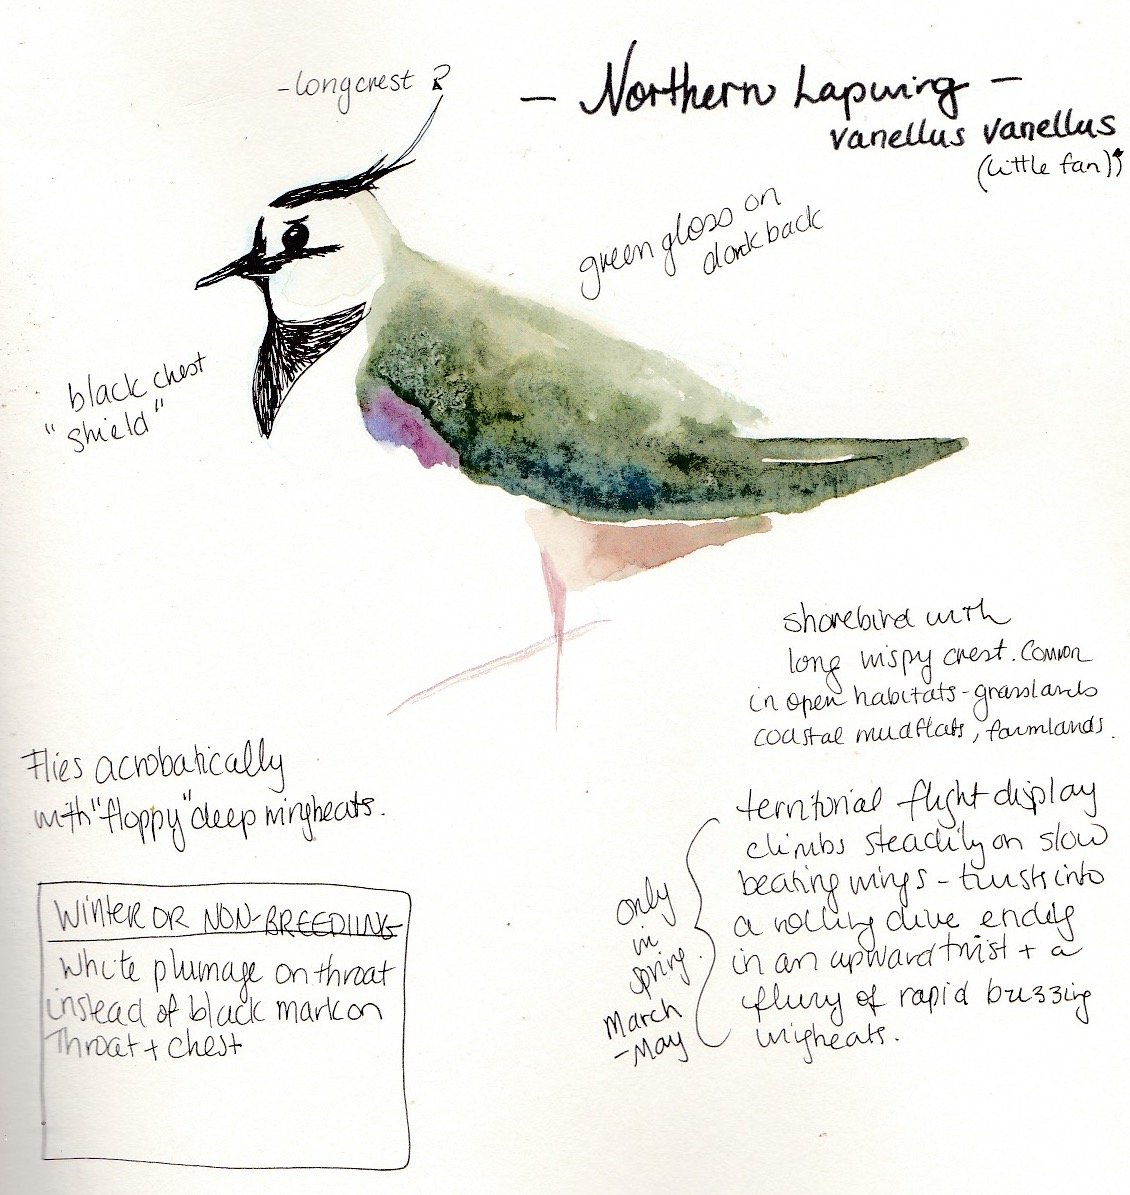 - long crest
- Northern Lapwing -
vanellus vanellus
(little fan)
green gloss on
dark back
black chest
"shield"
shorebird with
long wispy crest. Common
in open habitats - grasslands
coastal mudflats, farmlands.
Flies acrobatically
with "floppy" deep wingbeats.
territorial flight display
climbs steadily on slow
beating wings - twists into
a rolling dive ending
in an upward twist + a
flurry of rapid buzzing
wingbeats.
only
in
spring.
March
- May
WINTER OR NON-BREEDING
White plumage on throat
instead of black mark on
Throat + chest